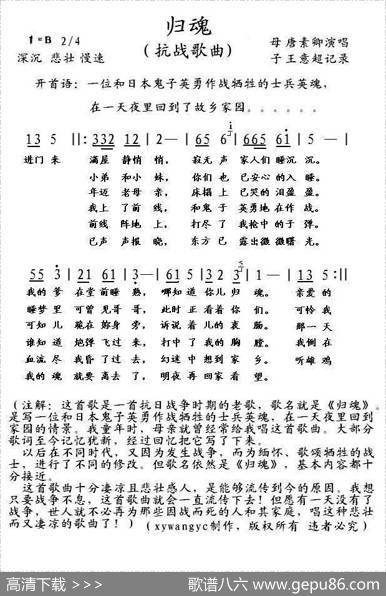 归魂
1=B 2/4
（抗战歌曲）
母 唐素卿演唱
深沉 悲壮 慢速
子 王意超记录
开首语：一位和日本鬼子英勇作战牺牲的士兵英魂，
在一天夜里回到了故乡家园。。。。。。
13 5 | 332 12 | 2 — | 65 6 i | 665 61 | 5 — |
进门来 满屋静悄悄， 寂无声 家人们睡沉沉。
小弟和小妹， 你们也已安心的入睡。
年迈老母亲， 床榻上已哭的泪盈盈。
我上了前线， 和鬼子英勇地在作战。
前线阵地上， 打尽了我枪中的子弹。
已声声报晓， 东方已露出微微曙光。
55 3 | 21 61 | 3 — | 61 5 | 12 32 3 | 1 — | 13 5 :||
我的爹在堂前睡熟， 哪知道你儿归魂。 亲爱的
睡梦里可曾见哥哥， 此时正看着你们。 可怜我
可知儿跪在妳身旁， 诉说着儿的衷肠。 那一天
谁知道炮弹飞过来， 打中了我的胸膛。 我倒在
血流尽我昏了过去， 幻迷中想到家乡。 听雄鸡
我的魂就要离去了， 明夜再回家看望。
（注解：这首歌是一首抗日战争时期的老歌，歌名就是《归魂》。
是写一位和日本鬼子英勇作战牺牲的士兵英魂，在一天夜里回到
家园的情景。我童年时，母亲就曾经常给我唱这首歌曲。大部分
歌词至今记忆犹新，经过回忆把它写了下来。
以后在不同时代，又因为发生战争，而为缅怀、歌颂牺牲的战
士，进行了不同的修改。但歌名依然是《归魂》，基本内容都十
分接近。
这首歌曲十分凄凉且悲壮感人，是能够流传到今的原因。我想
只要战争不息，这首歌曲就会一直流传下去！但愿有一天没有了
战争，世人就不必再为那些因战而死的人和其家庭，唱这种悲壮
而又凄凉的歌曲了！）（xywangyc制作，版权所有 违者必究）
高清下载 >>>
歌谱八六 www.gepu86.com